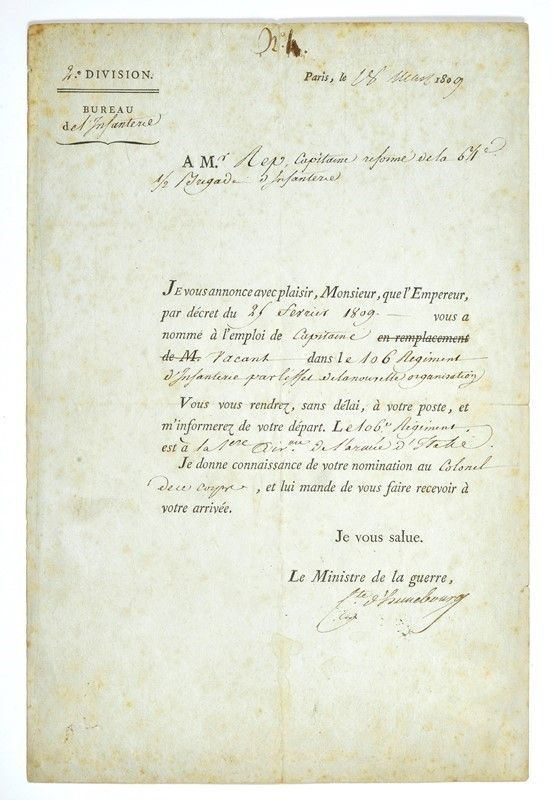 2.e DIVISION.
Paris, le 18 Mars 1809
BUREAU
de l'Infanterie
A M.r Rep, Capitaine reformé de la 64e
1/2 Brigade d'Infanterie
JE vous annonce avec plaisir, Monsieur, que l'Empereur,
par décret du 25 fevrier 1809. vous a
nommé à l'emploi de Capitaine en remplacement
de M. Vacant dans le 106 Regiment
d'Infanterie par l'effet de la nouvelle organisation
Vous vous rendrez, sans délai, à votre poste, et
m'informerez de votre départ. Le 106.e Régiment
est à la 1ere Div. de l'armée d'Italie.
Je donne connaissance de votre nomination au Colonel
de ce corps, et lui mande de vous faire recevoir à
votre arrivée.
Je vous salue.
Le Ministre de la guerre,
Cte d'hunebourg